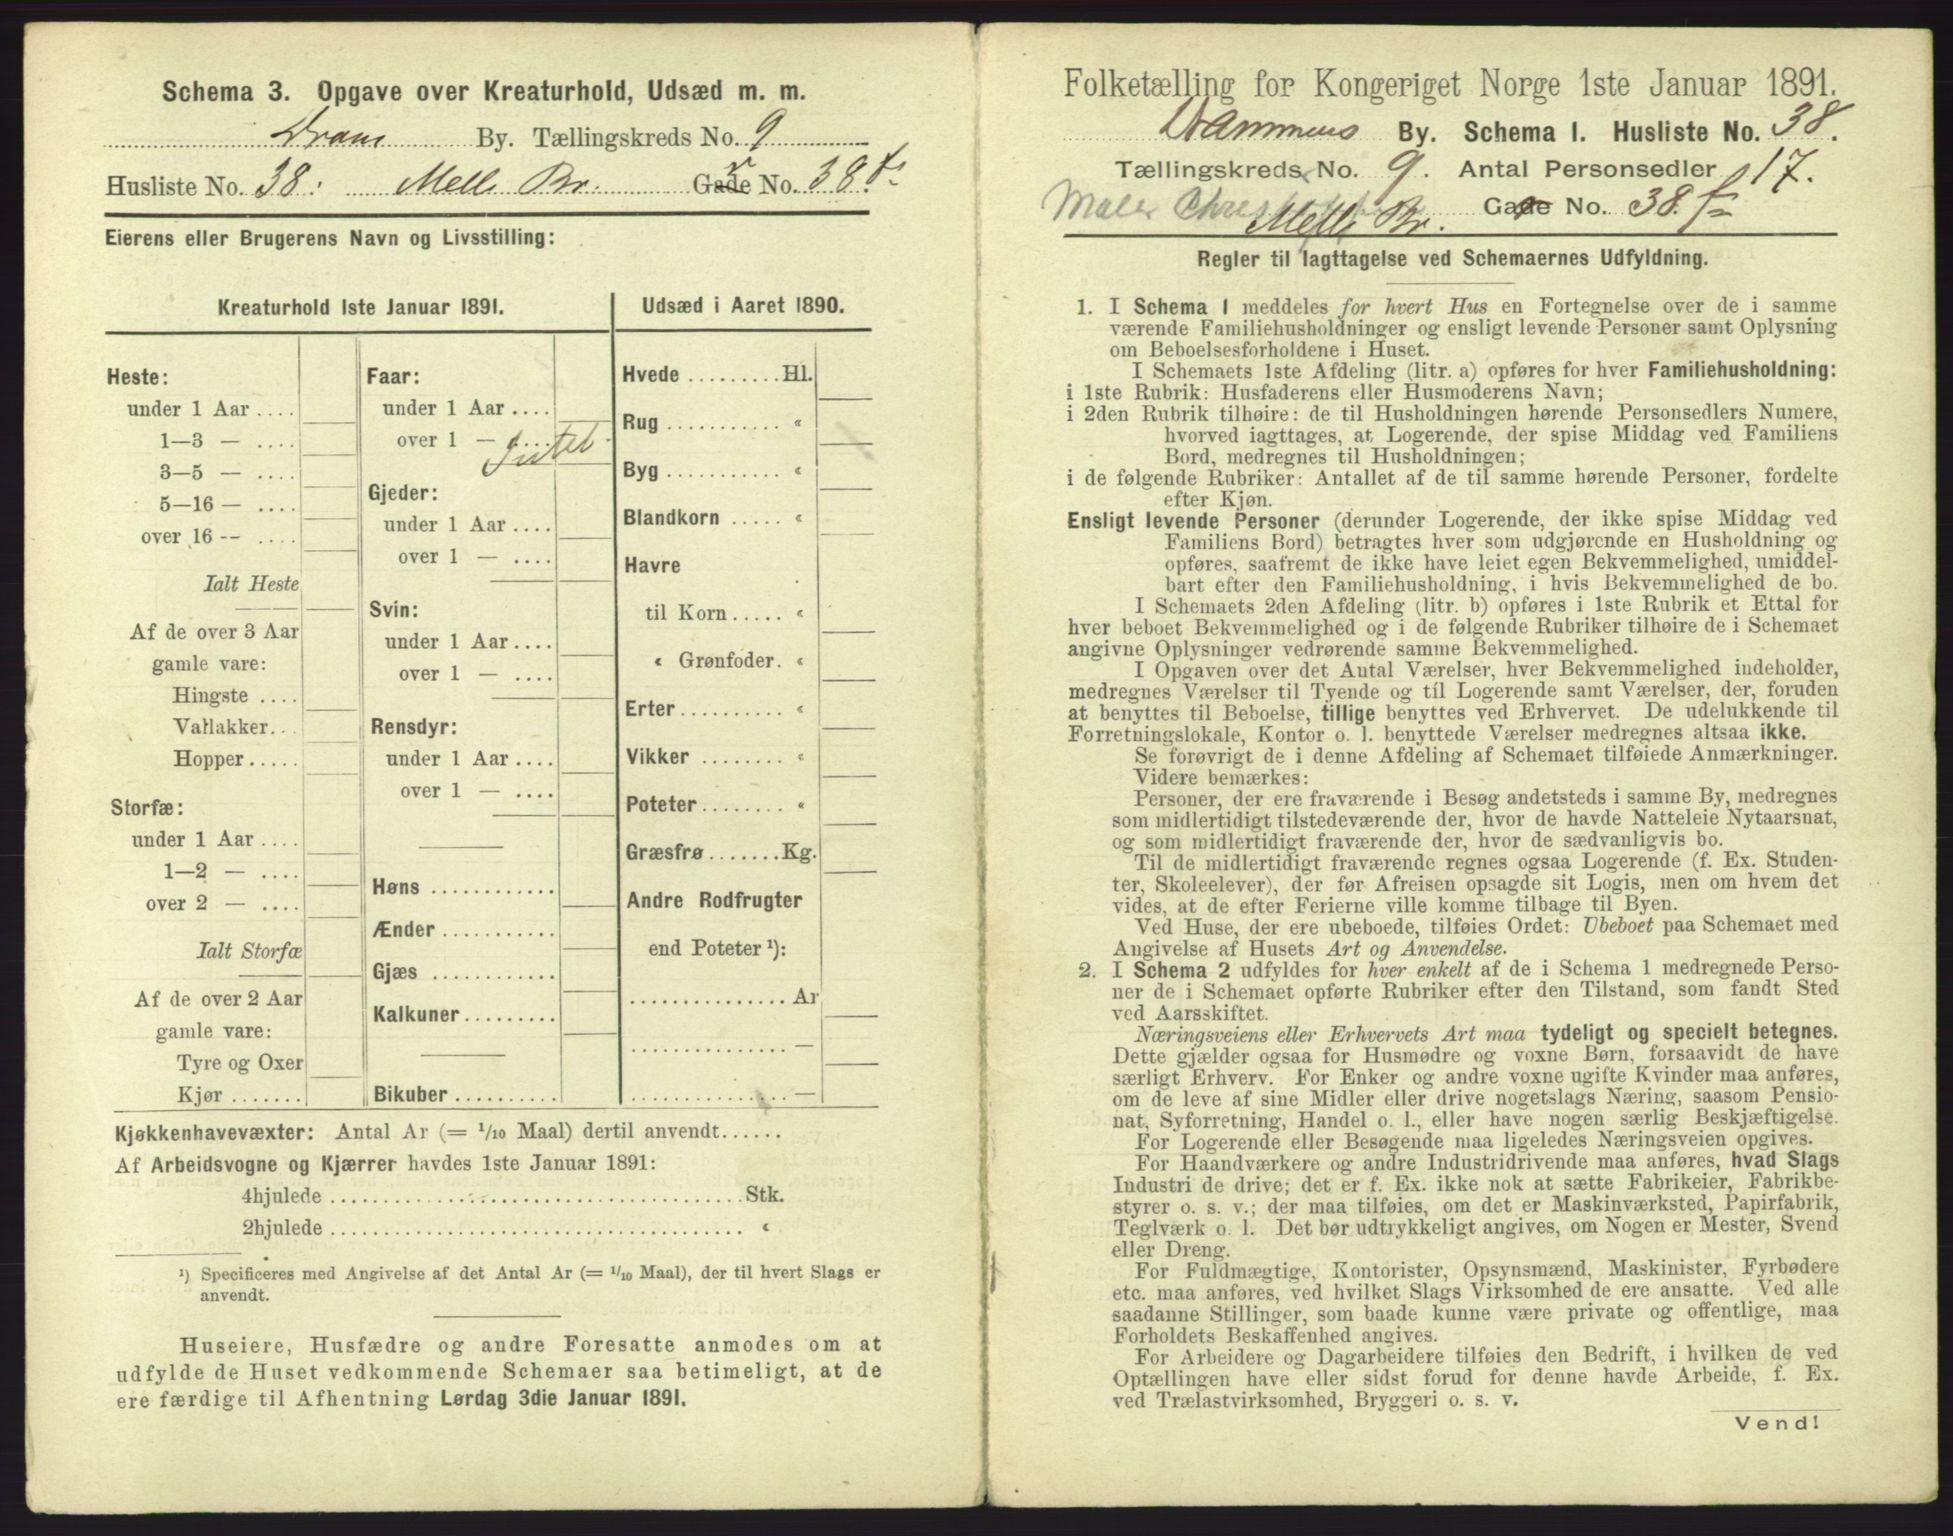 Schema 3. Opgave over Kreaturhold, Udsæd m. m.
Dram By. Tællingskreds No. 9
Husliste No. 38. Melle Br. Gade No. 38 f.
Eierens eller Brugerens Navn og Livsstilling:
Kreaturhold 1ste Januar 1891.
Heste:
under 1 Aar ....
1—3 — ....
3—5 — ....
5—16 — ....
over 16 -- ....
Ialt Heste
Af de over 3 Aar
gamle vare:
Hingste ....
Vallakker...
Hopper.....
Storfæ:
under 1 Aar ....
1—2 — ....
over 2 — ....
Ialt Storfæ
Af de over 2 Aar
gamle vare:
Tyre og Oxer
Kjør .......
Faar:
under 1 Aar ....
over 1 — ....
Intet
Gjeder:
under 1 Aar ....
over 1 — ....
Svin:
under 1 Aar ....
over 1 — ....
Rensdyr:
under 1 Aar ....
over 1 — ....
Høns ............
Ænder ...........
Gjæs ............
Kalkuner.........
Bikuber ..........
Udsæd i Aaret 1890.
Hvede .........Hl.
Rug ........... «
Byg ........... «
Blandkorn ..... «
Havre
til Korn..... «
« Grønfoder. «
Erter.......... «
Vikker ........ «
Poteter........ «
Græsfrø.......Kg.
Andre Rodfrugter
end Poteter ¹):
............... Ar
............... —
............... —
Kjøkkenhavevæxter: Antal Ar (= 1/10 Maal) dertil anvendt......
Af Arbeidsvogne og Kjærrer havdes 1ste Januar 1891:
4hjulede ........................................Stk.
2hjulede ........................................ «
¹) Specificeres med Angivelse af det Antal Ar (= 1/10 Maal), der til hvert Slags er
anvendt.
Huseiere, Husfædre og andre Foresatte anmodes om at
udfylde de Huset vedkommende Schemaer saa betimeligt, at de
ere færdige til Afhentning Lørdag 3die Januar 1891.
Folketælling for Kongeriget Norge 1ste Januar 1891.
Drammens By. Schema 1. Husliste No. 38.
Tællingskreds No. 9. Antal Personsedler 17.
Maler Melle Br. Gade No. 38. f
Regler til Iagttagelse ved Schemaernes Udfyldning.
1. I Schema 1 meddeles for hvert Hus en Fortegnelse over de i samme
værende Familiehusholdninger og ensligt levende Personer samt Oplysning
om Beboelsesforholdene i Huset.
I Schemaets 1ste Afdeling (litr. a) opføres for hver Familiehusholdning:
i 1ste Rubrik: Husfaderens eller Husmoderens Navn;
i 2den Rubrik tilhøire: de til Husholdningen hørende Personsedlers Numere,
hvorved iagttages, at Logerende, der spise Middag ved Familiens
Bord, medregnes til Husholdningen;
i de følgende Rubriker: Antallet af de til samme hørende Personer, fordelte
efter Kjøn.
Ensligt levende Personer (derunder Logerende, der ikke spise Middag ved
Familiens Bord) betragtes hver som udgjørende en Husholdning og
opføres, saafremt de ikke have leiet egen Bekvemmelighed, umiddel-
bart efter den Familiehusholdning, i hvis Bekvemmelighed de bo.
I Schemaets 2den Afdeling (litr. b) opføres i 1ste Rubrik et Ettal for
hver beboet Bekvemmelighed og i de følgende Rubriker tilhøire de i Schemaet
angivne Oplysninger vedrørende samme Bekvemmelighed.
I Opgaven over det Antal Værelser, hver Bekvemmelighed indeholder,
medregnes Værelser til Tyende og til Logerende samt Værelser, der, foruden
at benyttes til Beboelse, tillige benyttes ved Erhvervet. De udelukkende til
Forretningslokale, Kontor o. l. benyttede Værelser medregnes altsaa ikke.
Se forøvrigt de i denne Afdeling af Schemaet tilføiede Anmærkninger.
Videre bemærkes:
Personer, der ere fraværende i Besøg andetsteds i samme By, medregnes
som midlertidigt tilstedeværende der, hvor de havde Natteleie Nytaarsnat,
og som midlertidigt fraværende der, hvor de sædvanligvis bo.
Til de midlertidigt fraværende regnes ogsaa Logerende (f. Ex. Studen-
ter, Skoleelever), der før Afreisen opsagde sit Logis, men om hvem det
vides, at de efter Ferierne ville komme tilbage til Byen.
Ved Huse, der ere ubeboede, tilføies Ordet: Ubeboet paa Schemaet med
Angivelse af Husets Art og Anvendelse.
2. I Schema 2 udfyldes for hver enkelt af de i Schema 1 medregnede Perso-
ner de i Schemaet opførte Rubriker efter den Tilstand, som fandt Sted
ved Aarsskiftet.
Næringsveiens eller Erhvervets Art maa tydeligt og specielt betegnes.
Dette gjælder ogsaa for Husmødre og voxne Børn, forsaavidt de have
særligt Erhverv. For Enker og andre voxne ugifte Kvinder maa anføres,
om de leve af sine Midler eller drive nogetslags Næring, saasom Pensio-
nat, Syforretning, Handel o. l., eller have nogen særlig Beskjæftigelse.
For Logerende eller Besøgende maa ligeledes Næringsveien opgives.
For Haandværkere og andre Industridrivende maa anføres, hvad Slags
Industri de drive; det er f. Ex. ikke nok at sætte Fabrikeier, Fabrikbe-
styrer o. s. v.; der maa tilføies, om det er Maskinværksted, Papirfabrik,
Teglværk o. l. Det bør udtrykkeligt angives, om Nogen er Mester, Svend
eller Dreng.
For Fuldmægtige, Kontorister, Opsynsmænd, Maskinister, Fyrbødere
etc. maa anføres, ved hvilket Slags Virksomhed de ere ansatte. Ved alle
saadanne Stillinger, som baade kunne være private og offentlige, maa
Forholdets Beskaffenhed angives.
For Arbeidere og Dagarbeidere tilføies den Bedrift, i hvilken de ved
Optællingen have eller sidst forud for denne havde Arbeide, f. Ex.
ved Trælastvirksomhed, Bryggeri o. s. v.
Vend!